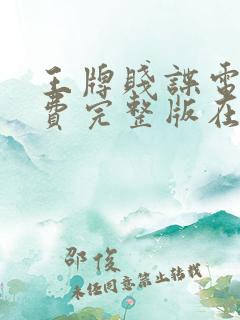 王牌賤諜電
費完整版在
邵俊
未经同意禁止转载